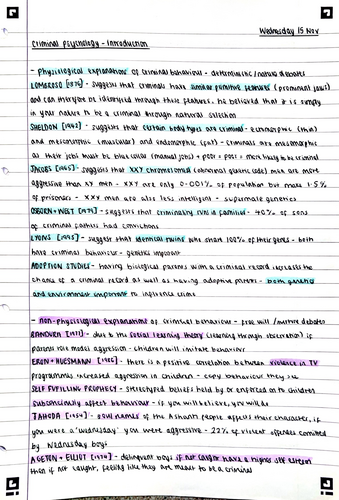 Wednesday 15 Nov
Criminal Psychology - Introduction
- Physiological explanations of criminal behaviour - deterministic / nature debates
LOMBROSO [1876] - suggests that criminals have similar primitive features (prominent jaws)
and can therefore be identified through these features. he believed that it is simply
in your nature to be a criminal through natural selection
SHELDON [1942] - suggests that certain body types are criminal - ectomorphic (thin)
and mesomorphic (muscular) and endomorphic (fat) - criminals are mesomorphic
as their jobs must be blue collar (manual jobs) + poor = more likely to be criminal
JACOBS [1965] - suggests that XYY chromosomed (abnormal genetic code) men are more
aggressive than XY men - XYY are only 0.001% of population but make 1.5%
of prisoners - XYY are also less intelligent - supermale genetics
OSBORN + WEST [1979] - suggests that criminality runs in families - 40% of sons
of criminal fathers had convictions
LYONS [1995] - suggest that identical twins who share 100% of their genes - both
have criminal behaviour - genetics important
ADOPTION STUDIES - having biological parents with a criminal record increases the
chance of a criminal record as well as having adoptive parents - both genetics
and environment important to influence crime
- non-physiological explanations of criminal behaviour - free will / nurture debates
BANDURA [1977] - due to the social learning theory (learning through observation) if
parents role model aggression - children will imitate behaviour
ERON + HUESMANN [1986] - there is a positive correlation between violence in TV
programmes increased aggression in children - copy behaviour they see
SELF FULFILLING PROPHECY - stereotyped beliefs held by or enforced on to children
subconsciously affect behaviour - if you will believe, you will do
JAHODA [1954] - soul names of the Ashanti people affects their character, if
you were a 'Wednesday' you were aggressive - 22% of violent offences commited
by Wednesday boys
AGETON + ELLIOT [1974] - delinquent boys if not caught have a higher self esteem
then if not caught, feeling like they are meant to be a criminal